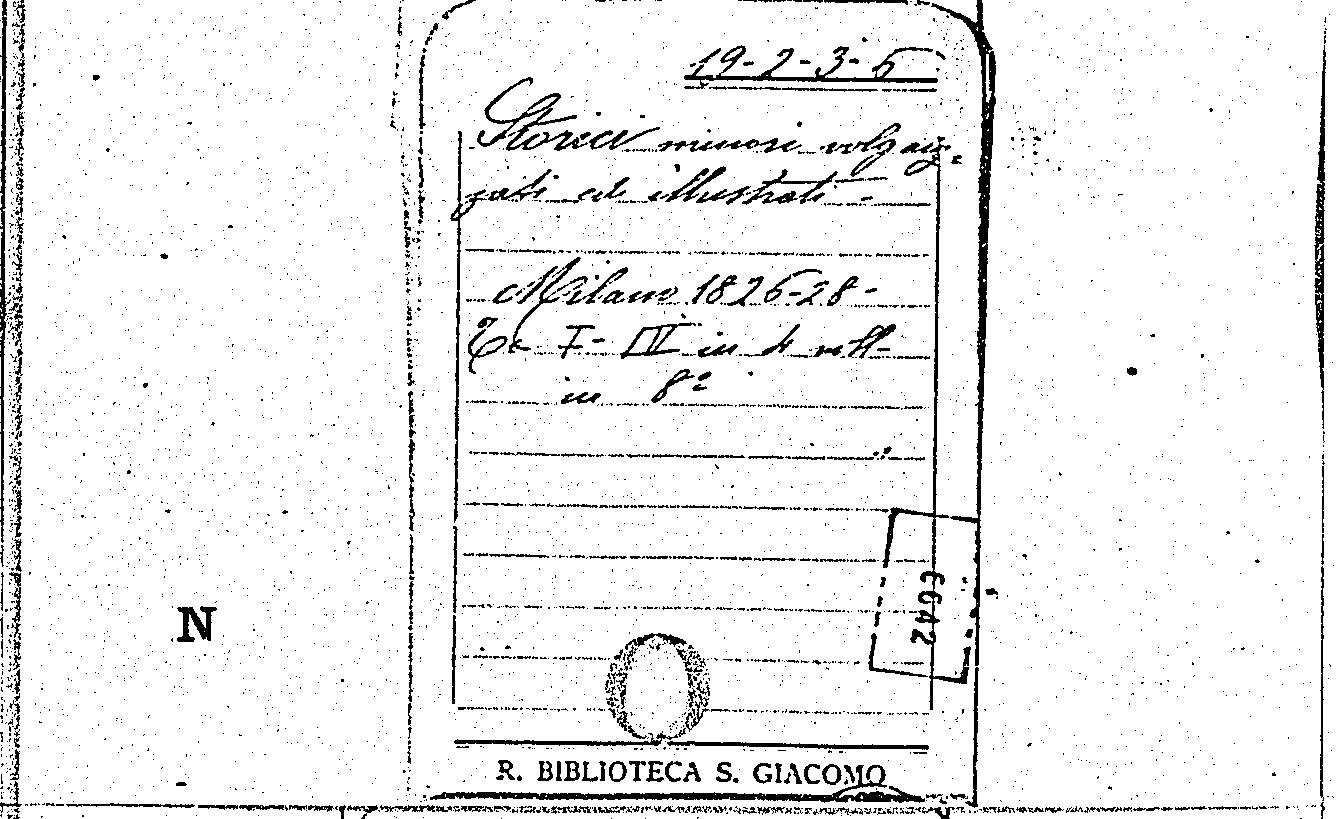 19-2-3-5
Storici minori volgariz=
zati ed illustrati -
Milano 1826-28-
To I- IV in 4 voll-
in 8º
6642
N
R. BIBLIOTECA S. GIACOMO